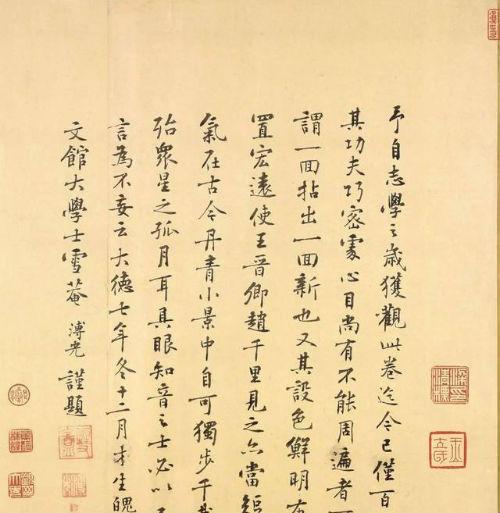 予自志學之歲獲觀此卷迄今已僅百
其功夫巧密處心目尚有不能周遍者
謂一囬拈出一囬新也又其設色鮮明布
置宏遠使王晉卿趙千里見之亦當短
氣在古今丹青小景中自可獨步千載
殆眾星之孤月耳具眼知音之士必以予
言為不妄云大德七年冬十二月才生魄
文館大學士雪菴溥光謹題